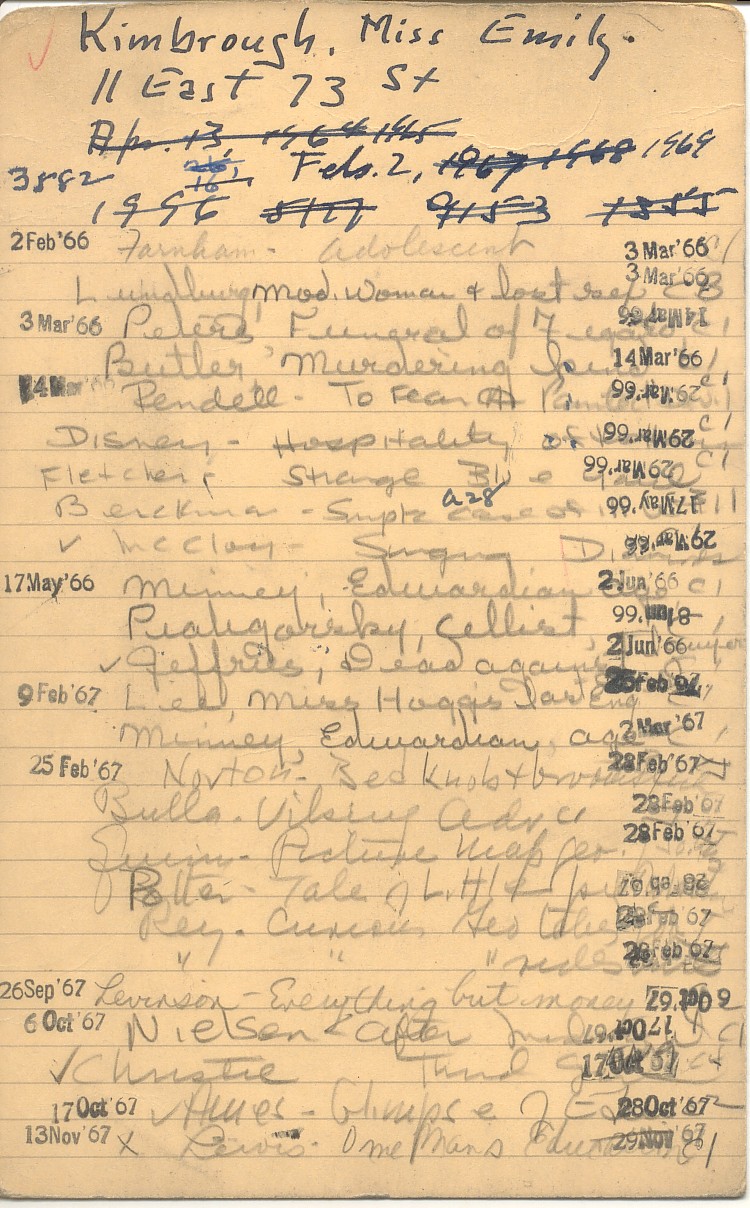 Kimbrough, Miss Emily.
11 East 73 St
Apr. 13, 1964 1965
3882 26, 16, Feb. 2, 1967 1968 1969
1996 5117 9153 1355
2 Feb '66 Farnham - Adolescent 3 Mar '66 C1
Mod. Woman & lost sex 3 Mar '66 C3
3 Mar '66 Peters Funeral of 7 14 Mar '66 C1
Butler Murdering 14 Mar '66
14 Mar '66 Pendell - To Fear A 29 Mar '66 C1
Disney - Hospitality of 29 Mar '66 C1
Fletcher, Strange Blue 29 Mar '66 C1
Berckman - case of 17 May '66
a28
✓ McCloy - Singing 29 Mar '66
17 May '66 Minney, Edwardian age 2 Jun '66 C1
Piatigorsky, Cellist 8 Jun '66
✓ Jeffries, Dead against 2 Jun '66
9 Feb '67 Lee, Miss Hogg's last 25 Feb '67
Minney, Edwardian age 2 Mar '67 C1
25 Feb '67 Norton - Bed Knob & broomstick 28 Feb '67
Bulla - Viking Adv 28 Feb '67
Quinn - Picture Map Geo. 28 Feb '67
Potter - Tale of Little pig 28 Feb '67
Rey - Curious Geo takes 28 Feb '67
" " " rides 28 Feb '67
26 Sep '67 Levinson - Everything but money 6 Oct '67
6 Oct '67 Nielsen - after 17 Oct '67 C1
✓ Christie Third 17 Oct '67
17 Oct '67 ✓ - Glimpse of 28 Oct '67
13 Nov '67 x Lewis - One Man's Education 29 Nov '67 C1